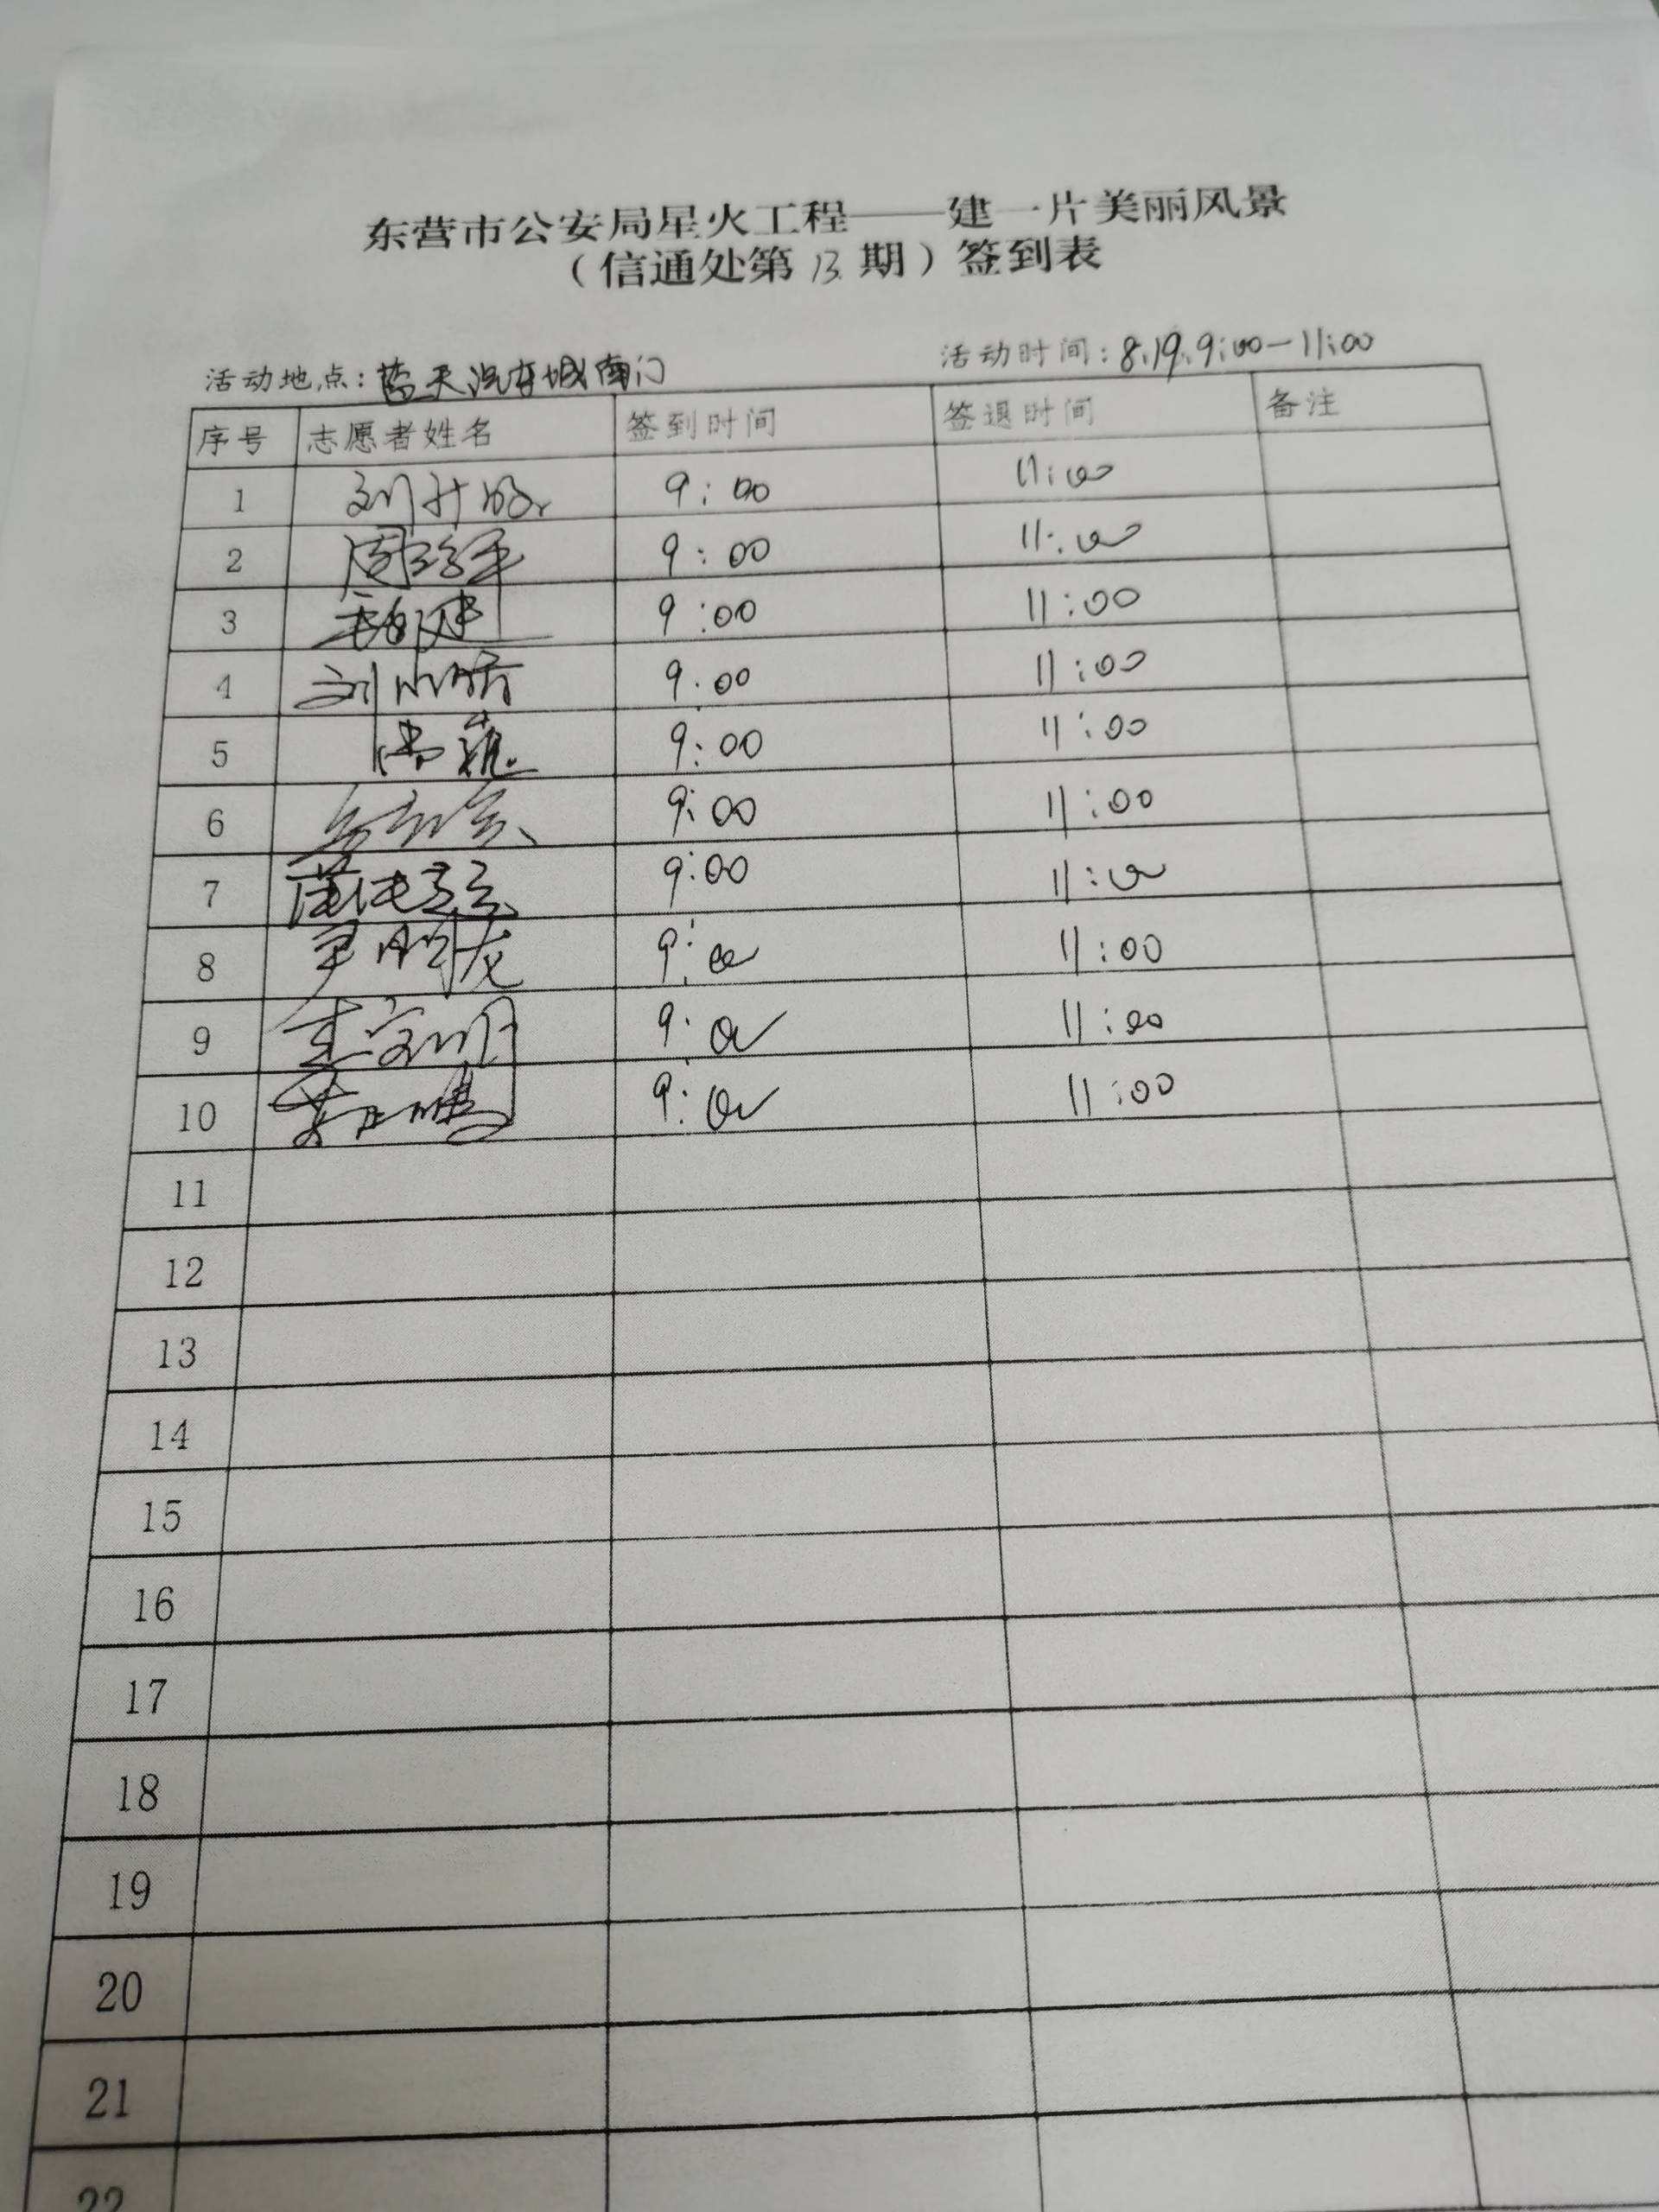 东营市公安局星火工程——建一片美丽风景
（信通处第 13 期）签到表
活动地点：蓝天汽车城南门 活动时间：8.19.9:00-11:00
序号 志愿者姓名 签到时间 签退时间 备注
1 9:00 11:00
2 9:00 11:00
3 9:00 11:00
4 9:00 11:00
5 9:00 11:00
6 9:00 11:00
7 9:00 11:00
8 尹鹏龙 9:00 11:00
9 9:00 11:00
10 9:00 11:00
11
12
13
14
15
16
17
18
19
20
21
22